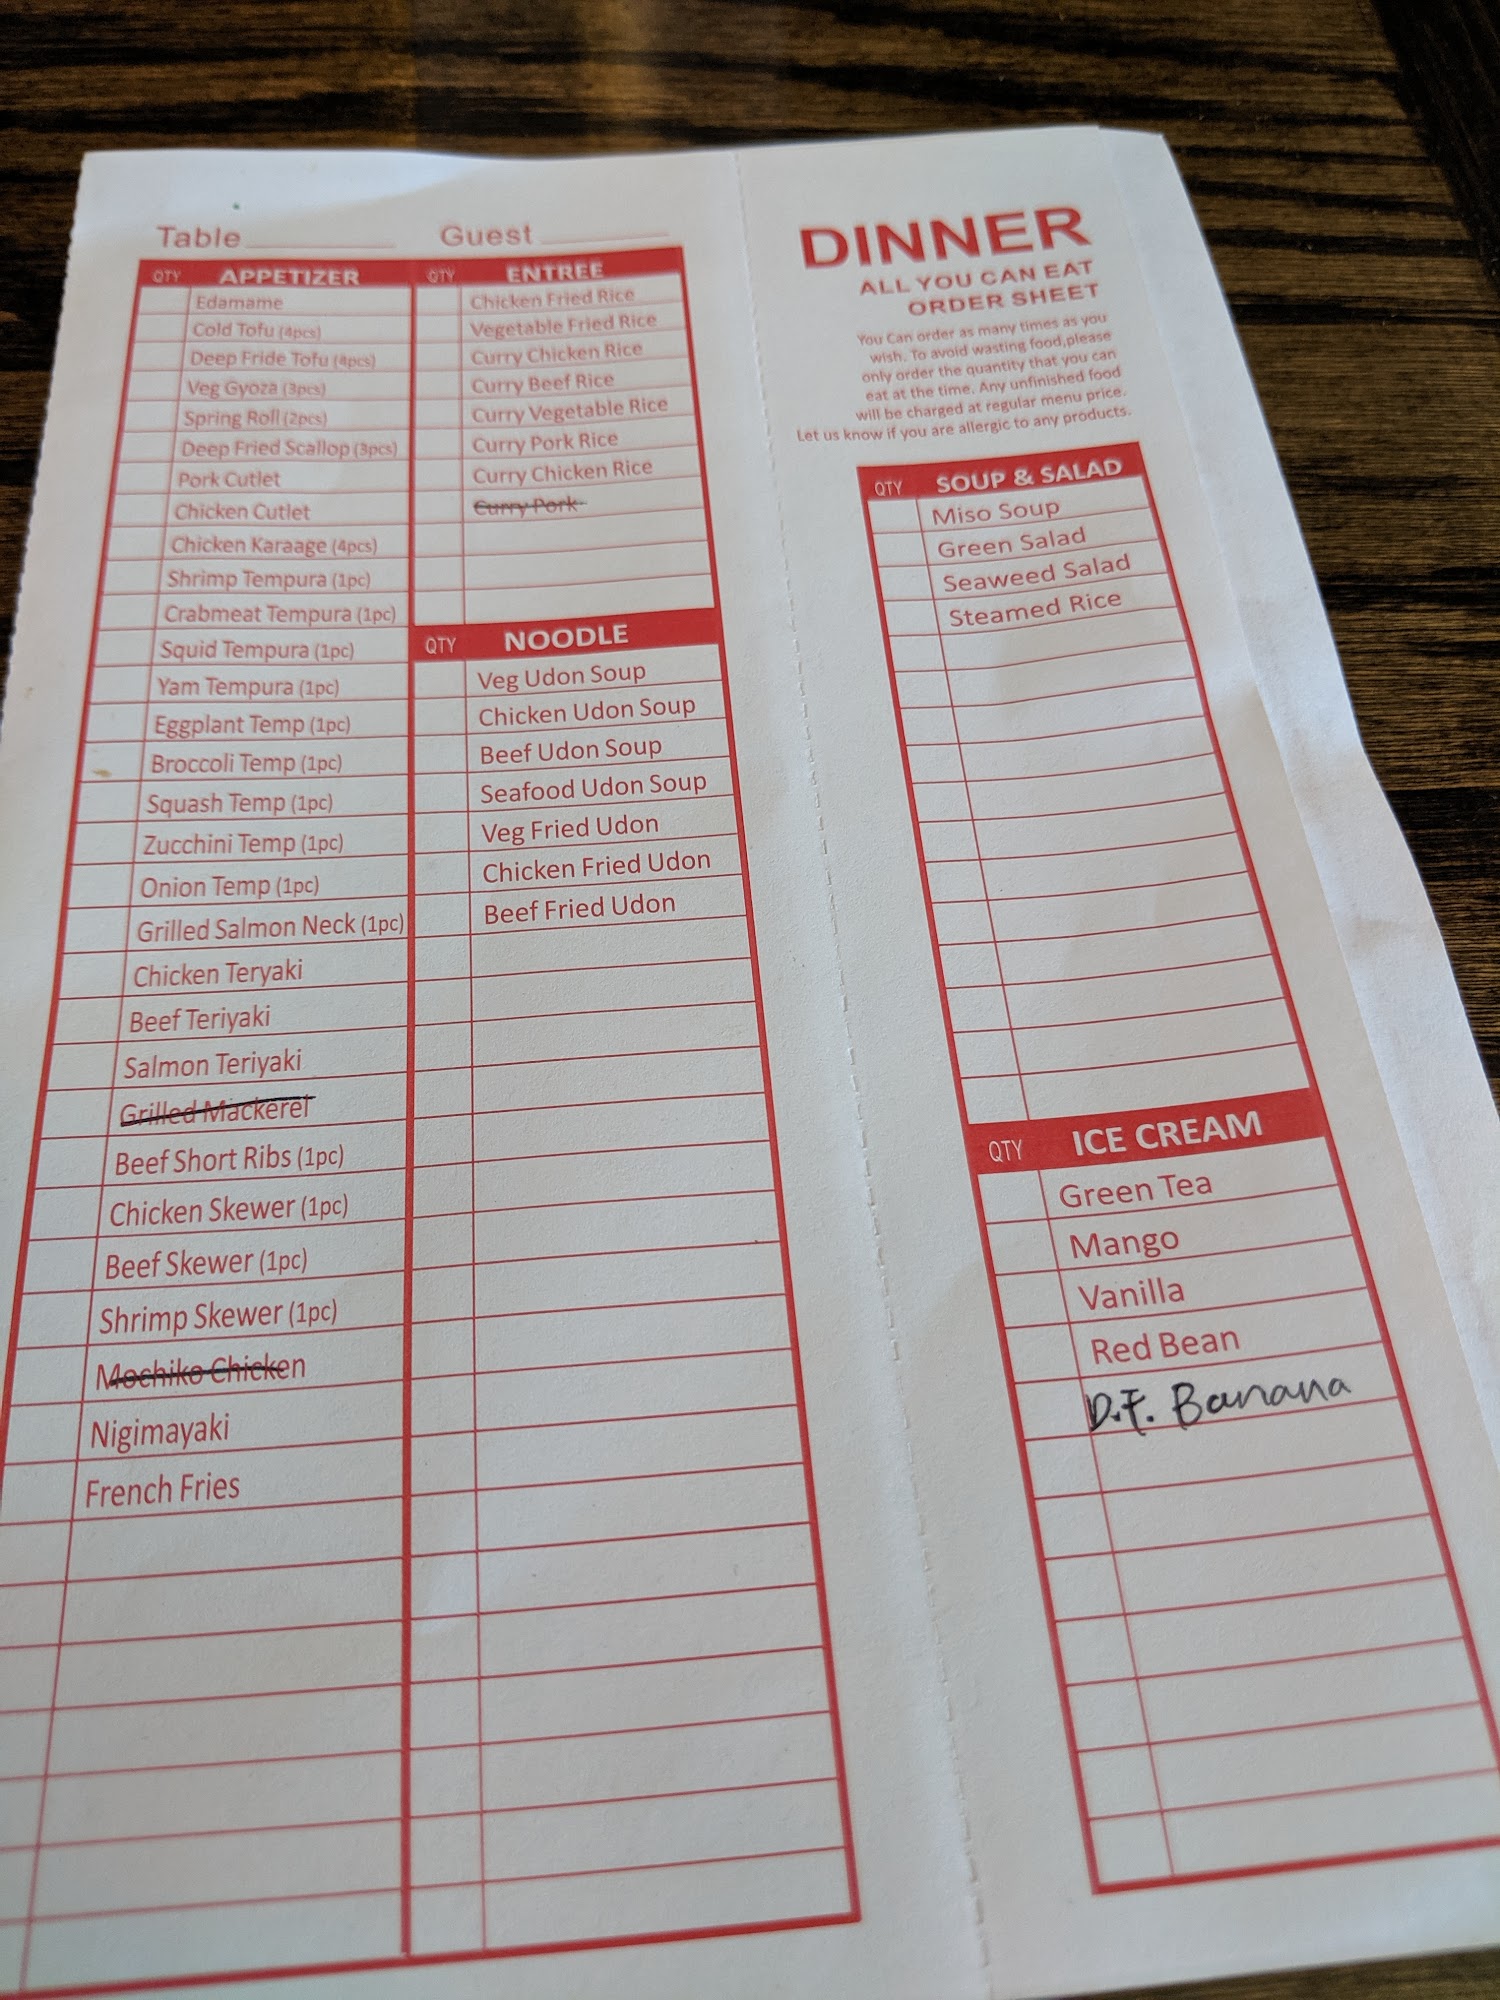 Table Guest
QTY APPETIZER
Edamame
Cold Tofu (4pcs)
Deep Fride Tofu (4pcs)
Veg Gyoza (3pcs)
Spring Roll (2pcs)
Deep Fried Scallop (3pcs)
Pork Cutlet
Chicken Cutlet
Chicken Karaage (4pcs)
Shrimp Tempura (1pc)
Crabmeat Tempura (1pc)
Squid Tempura (1pc)
Yam Tempura (1pc)
Eggplant Temp (1pc)
Broccoli Temp (1pc)
Squash Temp (1pc)
Zucchini Temp (1pc)
Onion Temp (1pc)
Grilled Salmon Neck (1pc)
Chicken Teryaki
Beef Teriyaki
Salmon Teriyaki
Grilled Mackerel
Beef Short Ribs (1pc)
Chicken Skewer (1pc)
Beef Skewer (1pc)
Shrimp Skewer (1pc)
Mochiko Chicken
Nigimayaki
French Fries
QTY ENTREE
Chicken Fried Rice
Vegetable Fried Rice
Curry Chicken Rice
Curry Beef Rice
Curry Vegetable Rice
Curry Pork Rice
Curry Chicken Rice
Curry Pork
QTY NOODLE
Veg Udon Soup
Chicken Udon Soup
Beef Udon Soup
Seafood Udon Soup
Veg Fried Udon
Chicken Fried Udon
Beef Fried Udon
DINNER
ALL YOU CAN EAT
ORDER SHEET
You Can order as many times as you
wish. To avoid wasting food,please
only order the quantity that you can
eat at the time. Any unfinished food
will be charged at regular menu price.
Let us know if you are allergic to any products.
QTY SOUP & SALAD
Miso Soup
Green Salad
Seaweed Salad
Steamed Rice
QTY ICE CREAM
Green Tea
Mango
Vanilla
Red Bean
D.F. Banana